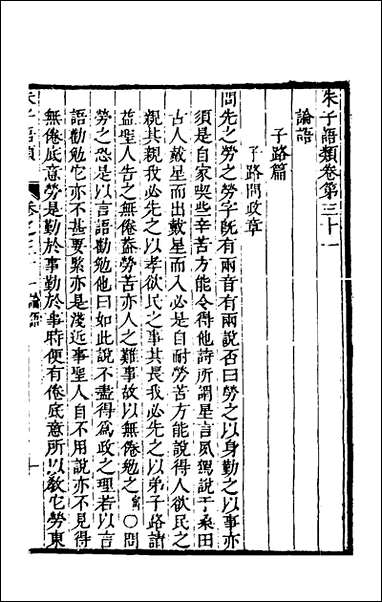 朱子語類卷第三十一
論語
子路篇
子路問政章
問先之勞之勞字既有兩音有兩說否曰勞之以身勤之以事亦
須是自家喫些辛苦方能令得他詩所謂星言夙駕說于桑田
古人戴星而出戴星而入必是自耐勞苦方能說得人欲民之
親其親我必先之以孝欲民之事其長我必先之以弟子路請
益聖人告之無倦蓋勞苦亦人之難事故以無倦勉之 〇問
勞之恐是以言語勸勉他曰如此說不盡得為政之理若以言
語勸勉它亦不甚要緊亦是淺近事聖人自不用說亦不見得
無倦底意勞是勤於事勤於事時便有倦底意所以教它勞東
朱子語類 卷之三十一 論語